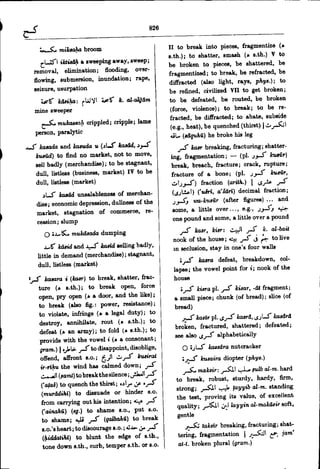 كسر
826
مكسحة miksaḥa broom
اكتساح iktisāḥ a sweeping away, sweep;
removal, elimination; flooding, over-
flowing, submersion, inundation; rape,
seizure, usurpation
كاسحة kāsiḥa: كاسحة الالغام k. al-alḡām
mine sweeper
مكسح mukassaḥ crippled; cripple; lame
person, paralytic
كسد kasada and kasuda u (كساد kasād, كسود
kusūd) to find no market, not to move,
sell badly (merchandise); to be stagnant,
dull, listless (business, market) IV to be
dull, listless (market)
كساد kasād unsalableness of merchan-
dise; economic depression, dullness of the
market, stagnation of commerce, re-
cession; slump
اكساد mukāsada dumping
كاسد kāsid and كسيد kasīd selling badly,
little in demand (merchandise); stagnant,
dull, listless (market)
كسر kasara i (kasr) to break, shatter, frac-
ture (ه s.th.); to break open, force
open, pry open (ه a door, and the like);
to break (also fig.: power, resistance);
to violate, infringe (ه a legal duty); to
destroy, annihilate, rout (ه s.th.); to
defeat (ه an army); to fold (ه s.th.); to
provide with the vowel i (ه a consonant;
gram.) | كسر خاطره to disappoint, disoblige,
offend, affront s.o.; كسرت الريح kusirat
ir-rīḥu the wind has calmed down; كسر
الصمت (ṣamt) to break the silence; كسر العطش
(ʿaṭaš) to quench the thirst; كسر من مراده
(murādihī) to dissuade or hinder s.o.
from carrying out his intention; كسر عينه
(ʿainahū) (eg.) to shame s.o., put s.o.
to shame; كسر قلبه (qalbahū) to break
s.o.'s heart; to discourage s.o.; كسر من حدته
(ḥiddatihī) to blunt the edge of s.th.,
tone down s.th., curb, temper s.th. or s.o.
II to break into pieces, fragmentize (ه
s.th.); to shatter, smash (ه s.th.) V to
be broken to pieces, be shattered, be
fragmentized; to break, be refracted, be
diffracted (also light, rays, phys.); to
be refined, civilized VII to get broken;
to be defeated, be routed, be broken
(force, violence); to break; to be re-
fracted, be diffracted; to abate, subside
(e.g., heat), be quenched (thirst) | انكسرت
ساقه (sāquhū) he broke his leg
كسر kasr breaking, fracturing; shatter-
ing, fragmentation; — (pl. كسور kusūr)
break, breach, fracture; crack, rupture;
fracture of a bone; (pl. كسور kusūr,
كسورات) fraction (arith.) | كسر عشري
(اعشاري) (ʿušrī, aʿšārī) decimal fraction;
وكسور wa-kusūr (after figures) ... and
some, a little over..., e.g., جنيه وكسور
one pound and some, a little over a pound
كسر kasr, kisr: كسر البيت k. al-bait
nook of the house; عاش في كسر بيته to live
in seclusion, stay in one's four walls
كسرة kasra defeat, breakdown, col-
lapse; the vowel point for i; nook of the
house
كسرة kisra pl. كسر kisar, -āt fragment;
a small piece; chunk (of bread); slice (of
bread)
كسير kasīr pl. كسرى kasrā, كسارى kasārā
broken, fractured, shattered; defeated;
see also كسرى alphabetically
كسارة kassāra nutcracker
كسيرة kusaira diopter (phys.)
مكسر maksir: صلب المكسر ṣulb al-m. hard
to break, robust, sturdy, hardy, firm,
strong; طيب المكسر ṭayyib al-m. standing
the test, proving its value, of excellent
quality; لين المكسر layyin al-maksir soft,
gentle
تكسير taksīr breaking, fracturing; shat-
tering, fragmentation | جمع التكسير jamʿ
at-t. broken plural (gram.)